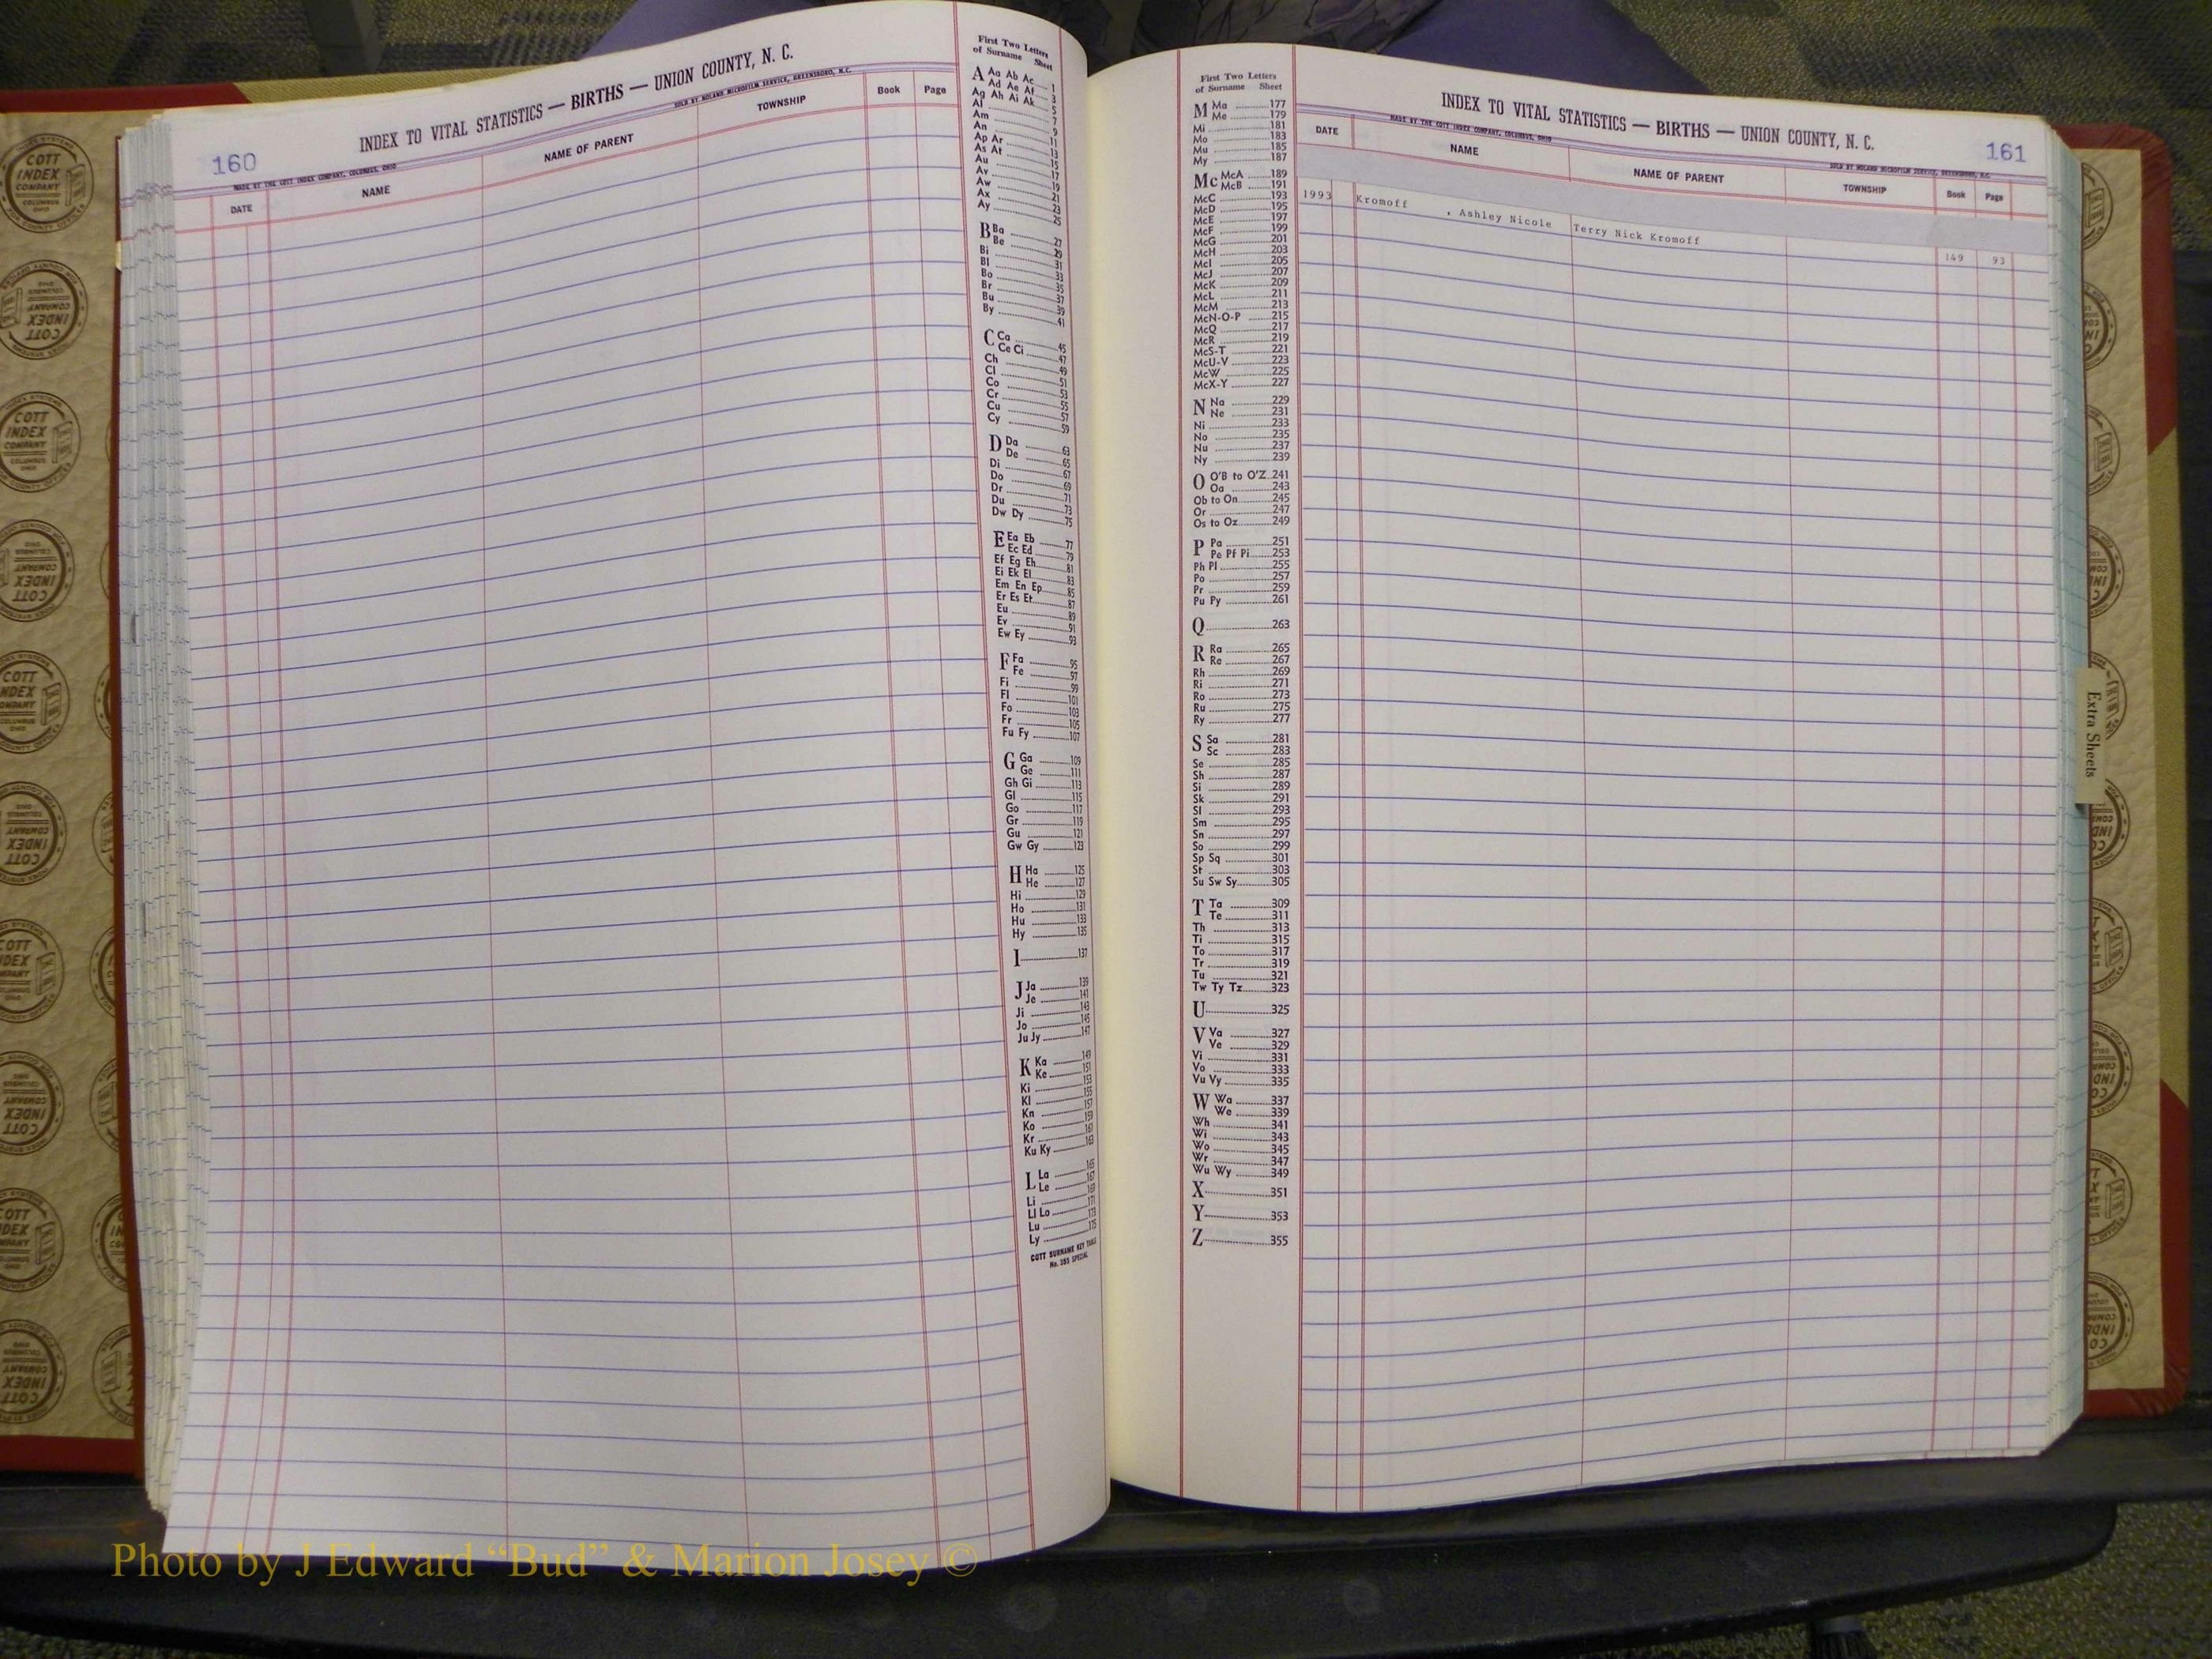 INDEX TO VITAL STATISTICS — BIRTHS — UNION COUNTY, N. C.
160
MADE BY THE COTT INDEX COMPANY, COLUMBUS, OHIO
SOLD BY NOLAND MICROFILM SERVICE, GREENSBORO, N.C.
DATE NAME NAME OF PARENT TOWNSHIP Book Page
First Two Letters
of Surname Sheet
A Aa Ab Ac 1
Ad Ae Af 3
Ag Ah Ai Ak 5
Al 7
Am 9
An 11
Ap Ar 13
As At 15
Au 17
Av 19
Aw 21
Ax 23
Ay 25
B Ba 27
Be 29
Bi 31
Bl 33
Bo 35
Br 37
Bu 39
By 41
C Ca 45
Ce Ci 47
Ch 49
Cl 51
Co 53
Cr 55
Cu 57
Cy 59
D Da 63
De 65
Di 67
Do 69
Dr 71
Du 73
Dw Dy 75
E Ea Eb 77
Ec Ed 79
Ef Eg Eh 81
Ei Ek El 83
Em En Ep 85
Er Es Et 87
Eu 89
Ev 91
Ew Ey 93
F Fa 95
Fe 97
Fi 99
Fl 101
Fo 103
Fr 105
Fu Fy 107
G Ga 109
Ge 111
Gh Gi 113
Gl 115
Go 117
Gr 119
Gu 121
Gw Gy 123
H Ha 125
He 127
Hi 129
Ho 131
Hu 133
Hy 135
I 137
J Ja 139
Je 141
Ji 143
Jo 145
Ju Jy 147
K Ka 149
Ke 151
Ki 153
Kl 155
Kn 157
Ko 159
Kr 161
Ku Ky 163
L La 165
Le 167
Li 169
Ll Lo 171
Lu 173
Ly 175
COTT SURNAME KEY TABLE
No. 355 SPECIAL
First Two Letters
of Surname Sheet
M Ma 177
Me 179
Mi 181
Mo 183
Mu 185
My 187
Mc McA 189
McB 191
McC 193
McD 195
McE 197
McF 199
McG 201
McH 203
McI 205
McJ 207
McK 209
McL 211
McM 213
McN-O-P 215
McQ 217
McR 219
McS-T 221
McU-V 223
McW 225
McX-Y 227
N Na 229
Ne 231
Ni 233
No 235
Nu 237
Ny 239
O O'B to O'Z 241
Oa 243
Ob to On 245
Or 247
Os to Oz 249
P Pa 251
Pe Pf Pi 253
Ph Pl 255
Po 257
Pr 259
Pu Py 261
Q 263
R Ra 265
Re 267
Rh 269
Ri 271
Ro 273
Ru 275
Ry 277
S Sa 281
Sc 283
Se 285
Sh 287
Si 289
Sk 291
Sl 293
Sm 295
Sn 297
So 299
Sp Sq 301
St 303
Su Sw Sy 305
T Ta 309
Te 311
Th 313
Ti 315
To 317
Tr 319
Tu 321
Tw Ty Tz 323
U 325
V Va 327
Ve 329
Vi 331
Vo 333
Vu Vy 335
W Wa 337
We 339
Wh 341
Wi 343
Wo 345
Wr 347
Wu Wy 349
X 351
Y 353
Z 355
INDEX TO VITAL STATISTICS — BIRTHS — UNION COUNTY, N. C.
161
MADE BY THE COTT INDEX COMPANY, COLUMBUS, OHIO
SOLD BY NOLAND MICROFILM SERVICE, GREENSBORO, N.C.
DATE NAME NAME OF PARENT TOWNSHIP Book Page
1993 Kromoff , Ashley Nicole Terry Nick Kromoff 149 93
Extra Sheets
COTT
INDEX
COMPANY
COLUMBUS
OHIO
Photo by J Edward “Bud” & Marion Josey ©